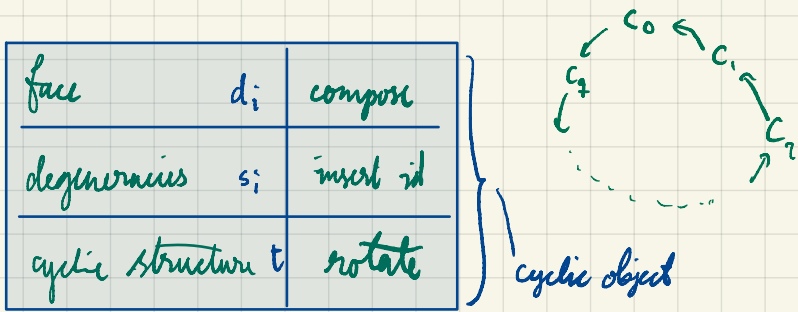 face dᵢ compose
degeneracies sᵢ insert id
cyclic structure t rotate
cyclic object
C₀
C₁
C₂
C_q